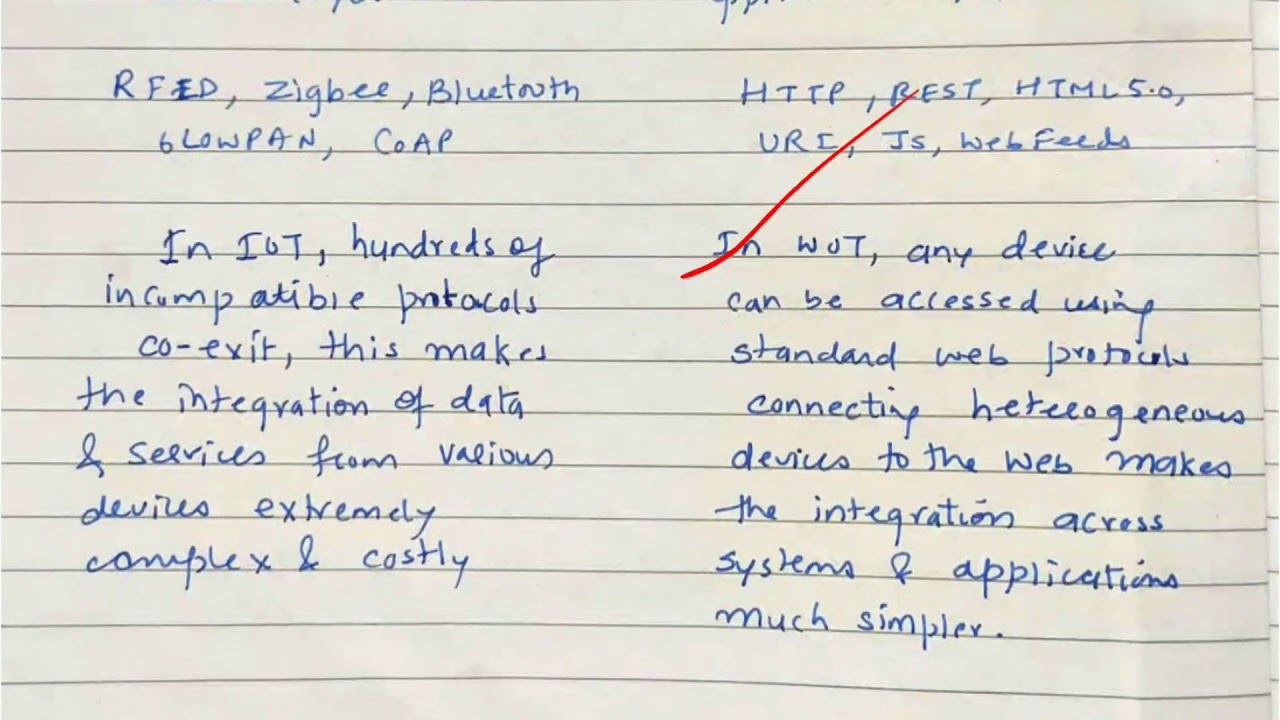 RFID, Zigbee, Bluetooth
6LOWPAN, CoAP
In IOT, hundreds of
incompatible protocols
co-exit, this makes
the integration of data
& services from various
devices extremely
complex & costly
HTTP, REST, HTML5.0,
URI, Js, Web Feeds
In WOT, any device
can be accessed using
standard web protocols
connecting heterogeneous
devices to the web makes
the integration across
systems & applications
much simpler.